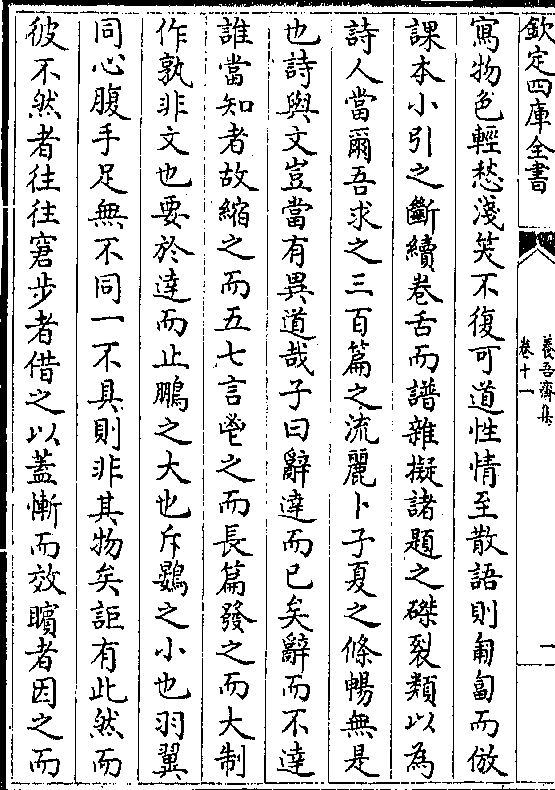 欽定四庫全書
養吾齋集
卷十一
一
寫物色輕愁淺笑不復可道性情至散語則匍匐而倣
課本小引之斷續卷舌而譜雜擬諸題之磔裂類以為
詩人當爾吾求之三百篇之流麗卜子夏之條暢無是
也詩與文豈當有異道哉子曰辭達而已矣辭而不達
誰當知者故縮之而五七言鬯之而長篇發之而大制
作孰非文也要於達而止鵬之大也斥鷃之小也羽翼
同心腹手足無不同一不具則非其物矣詎有此然而
彼不然者往往窘步者借之以蓋慚而效矉者因之而